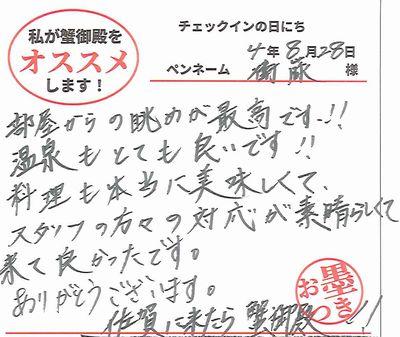 私が蟹御殿を
オススメ
します！
チェックインの日にち
4年8月28日
ペンネーム 衛藤 様
部屋からの眺めが最高です!!
温泉もとても良いです!!
料理も本当に美味しくて、
スタッフの方々の対応が素晴らしくて
来て良かったです。
ありがとうございます。
佐賀に来たら蟹御殿へ!!
お墨つき